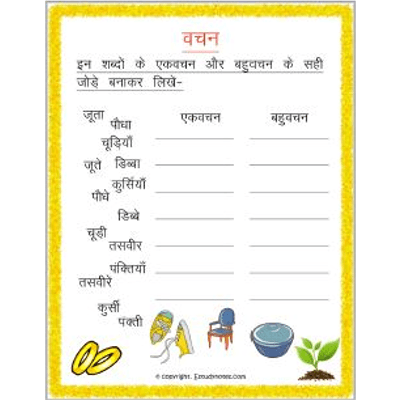 वचन
इन शब्दों के एकवचन और बहुवचन के सही
जोड़े बनाकर लिखे-
जूता
पौधा
एकवचन बहुवचन
चूड़ियाँ
जूते डिब्बा
कुर्सियाँ
पौधे
डिब्बे
चूड़ी
तसवीर
पंक्तियाँ
तसवीरे
कुर्सी
पंक्ती
© copyright, Estudynotes.com